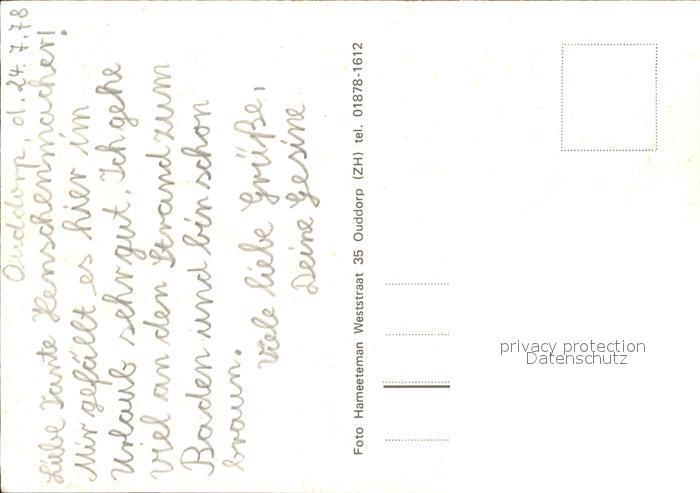 Ouddorp, d. 24.7.78
Liebe Tante Henschenmacher!
Mir gefällt es hier im
Urlaub sehr gut. Ich gehe
viel an den Strand zum
Baden und bin schon
braun.
Viele liebe Grüße,
Deine Gesine
Foto Hameeteman Weststraat 35 Ouddorp (ZH) tel. 01878-1612
privacy protection
Datenschutz